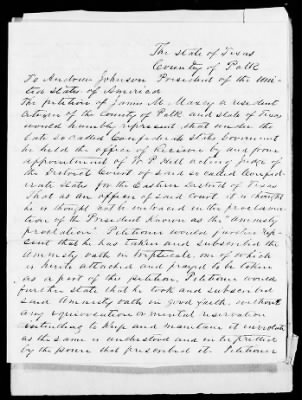 The State of Texas
County of Polk
To Andrew Johnson President of the Uni-
ted States of America
The petition of James M. Maxcy a resident
citizen of the County of Polk and State of Texas
would humbly represent that under the
late so called Confederate States Government
he held the office of Receiver by and from
appointment of W P Hill acting Judge of
the District Court of said so called Confed-
erate States for the Eastern District of Texas
that as an officer of said Court it is thought
he is thought not be embraced in the proclama-
tion of the President known as the "amnesty
proclamation" Petitioner would further rep-
sent that he has taken and subscribed the
Amnesty oath in triplicate, one of which
is herein attached and prayed to be taken
as a part of this petition, Petitioner would
further state that he took and subscribed
said Amnesty oath in good faith, without
any equivocation or mental reservation
intending to keep and maintain it inviolate
as the same is understood and interpreted
by the power that prescribed it. Petitioner